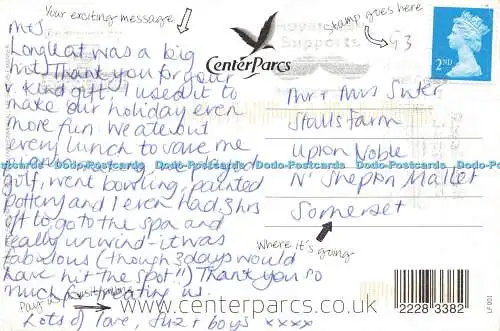 Your exciting message
M+J
Longleat was a big
hit. Thank you for your
v. kind gift! I used it to
make our holiday even
more fun. We ate out
every lunch to save me
golf, went bowling, painted
pottery and I even had 3 hrs
off to go to the spa and
really unwind - it was
fabulous (though 3 days would
have hit the spot!!) Thank you so
much treating us.
Lots of love, Suz + boys xxxx
Center Parcs
Supports
stamp goes here
G3
2ND
Mr + Mrs Suter
Stalls Farm
Upton Noble
Nr Shepton Mallet
Somerset
Where it's going
www.centerparcs.co.uk
2228 3382
LF 001
Dodo-Postcards Dodo-Postcards Dodo-Postcards Dodo-Postcards Dodo-Postcards Dodo-Postcards